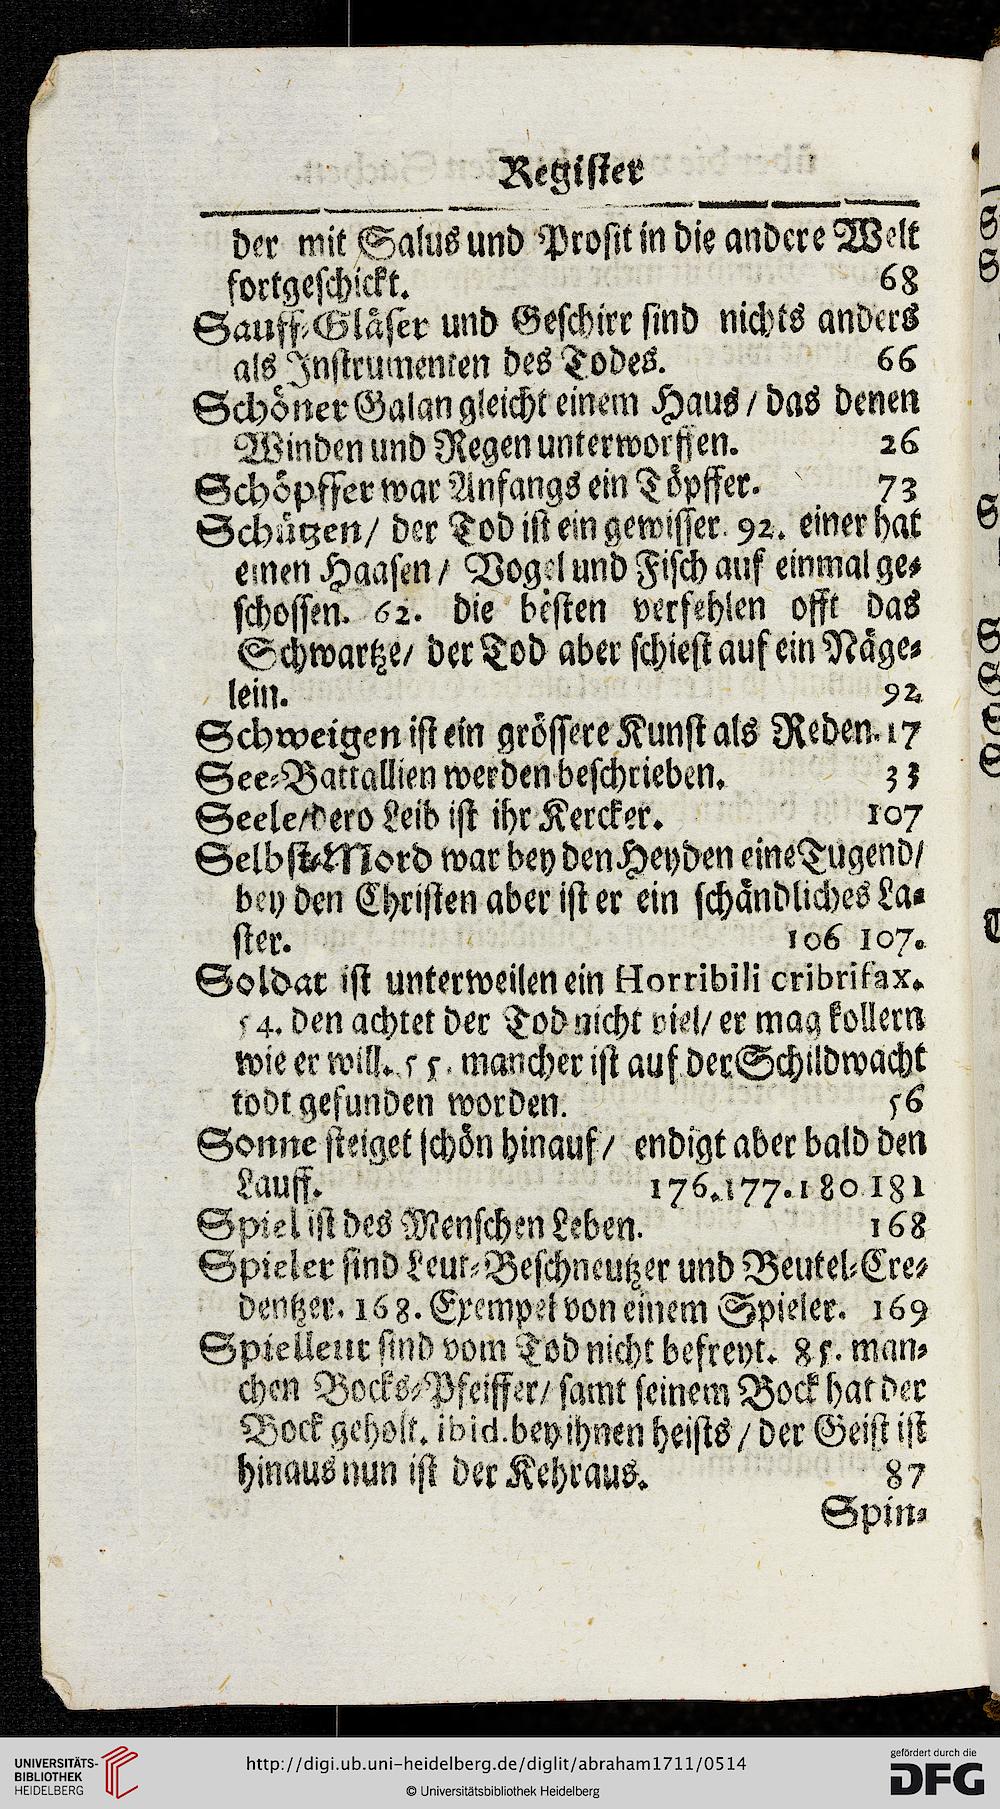 Register
der mit Salus und Prosit in die andere Welt
fortgeschickt. 68
Sauff-Gläser und Geschirr sind nichts anders
als Instrumenten des Todes. 66
Schöner Galan gleicht einem Haus / das denen
Winden und Regen unterworffen. 26
Schöpffer war Anfangs ein Töpffer. 73
Schützen / der Tod ist ein gewisser. 92. einer hat
einen Haasen / Vogel und Fisch auf einmal ge-
schossen. 62. die besten verfehlen offt das
Schwartze / der Tod aber schiest auf ein Näge-
lein. 92.
Schweigen ist ein grössere Kunst als Reden. 17
See-Battallien werden beschrieben. 33
Seele / dero Leib ist ihr Kercker. 107
Selbst-Mord war bey den Heyden eine Tugend /
bey den Christen aber ist er ein schändliches La-
ster. 106 107.
Soldat ist unterweilen ein Horribili cribrifax.
54. den achtet der Tod nicht viel / er mag kollern
wie er will. 55. mancher ist auf der Schildwacht
todt gefunden worden. 56
Sonne steiget schön hinauf / endigt aber bald den
Lauff. 176. 177. 180 181
Spiel ist des Menschen Leben. 168
Spieler sind Leut-Beschneutzer und Beutel-Cre-
dentzer. 168. Exempel von einem Spieler. 169
Spielleut sind vom Tod nicht befreyt. 85. man-
chen Bocks-Pfeiffer / samt seinem Bock hat der
Bock geholt. ibid. bey ihnen heists / der Geist ist
hinaus nun ist der Kehraus. 87
Spin-
UNIVERSITÄTS-
BIBLIOTHEK
HEIDELBERG
http://digi.ub.uni-heidelberg.de/diglit/abraham1711/0514
© Universitätsbibliothek Heidelberg
gefördert durch die
DFG